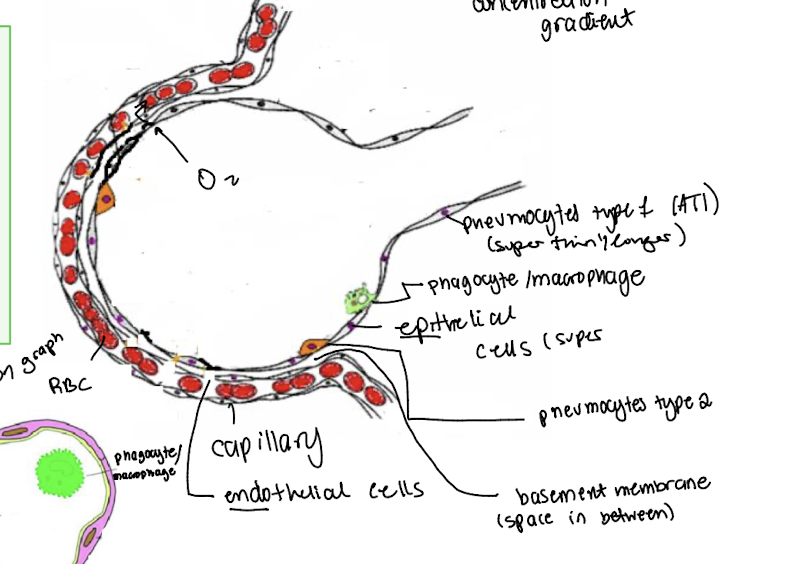 concentration
gradient
O2
pneumocytes type 1 (AT1)
(super thin/longer)
phagocyte/macrophage
epithelial
cells (super
on graph
RBC
pneumocytes type 2
phagocyte/
macrophage
capillary
endothelial cells
basement membrane
(space in between)